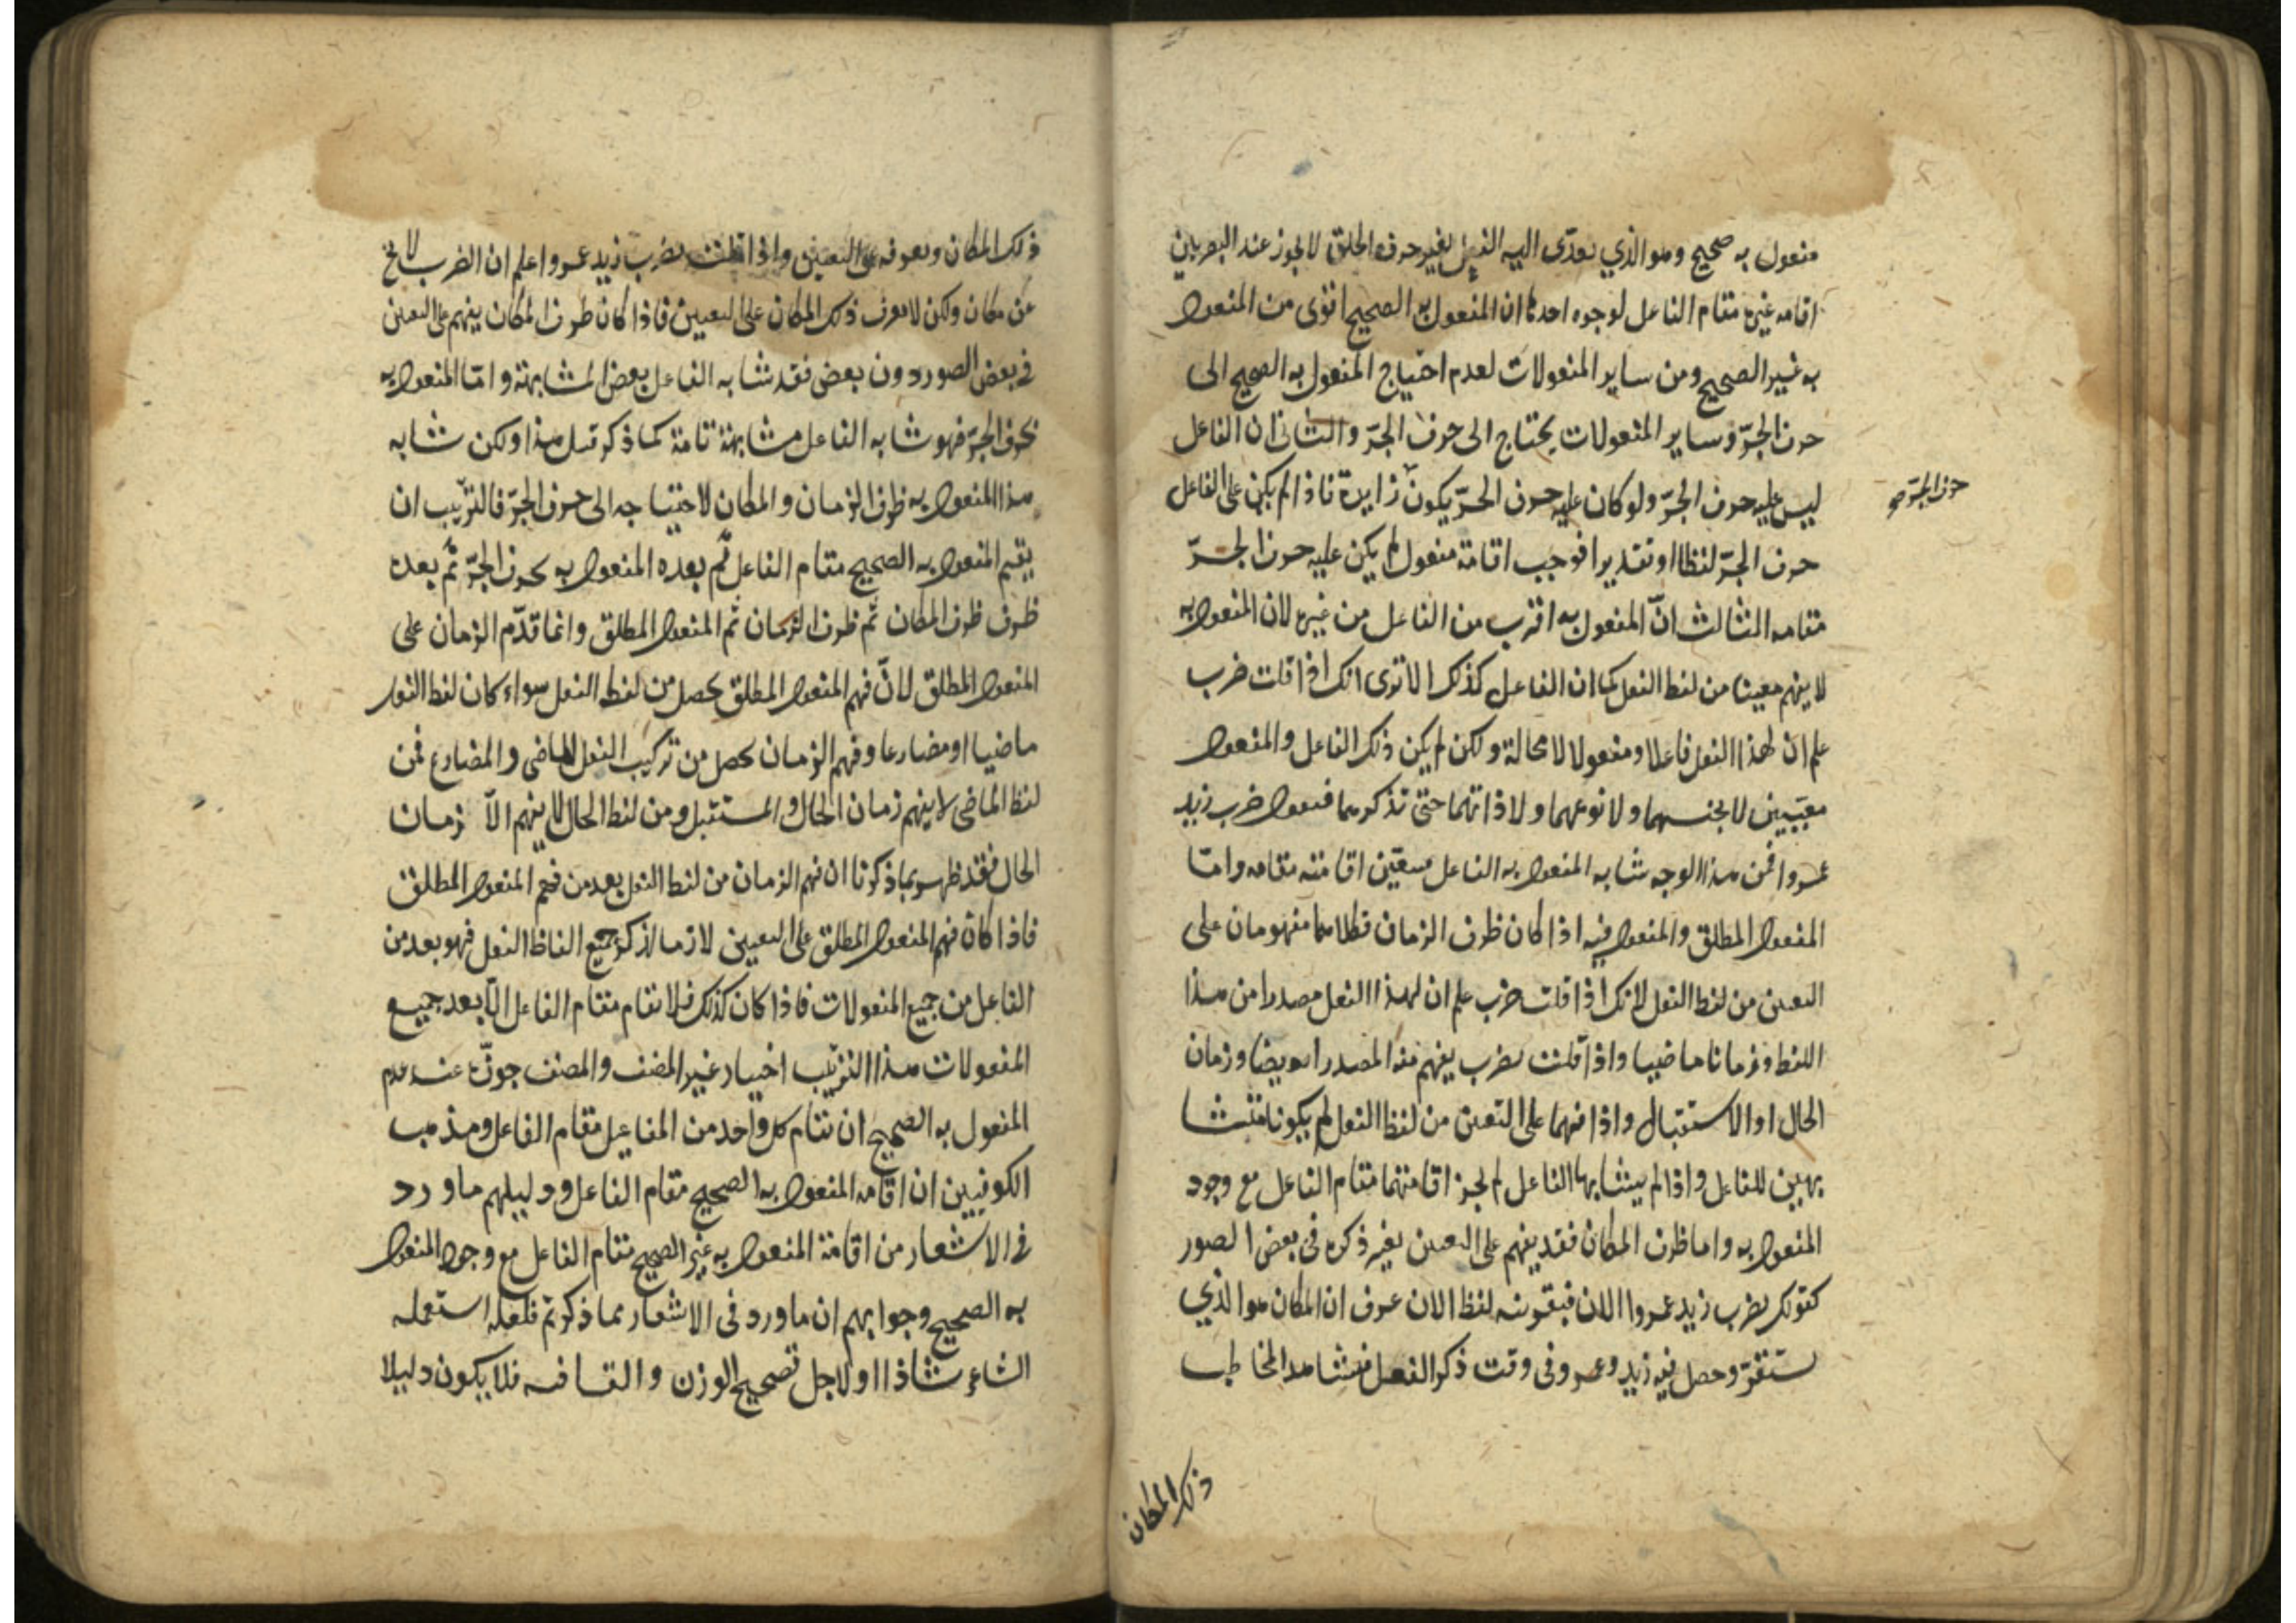 مفعول به صحيح وهو الذي يعدّى اليه الفعل بغير حرف الجر لا يجوز عند البصريين
اقامه غيره مقام الفاعل لوجوه احدها ان المفعول به الصحيح اقوى من المفعول
به غير الصحيح ومن ساير المفعولات لعدم احتياج المفعول به الصحيح الى
حرف الجرّ وساير المفعولات يحتاج الى حرف الجرّ والثانى ان الفاعل
ليس عليه حرف الجرّ ولو كان عليه حرف الجرّ يكون زايدة فاذا لم يكن على الفاعل
حرف الجرّ صح
حرف الجرّ لفظا او تقديرا فوجب اقامة مفعول لم يكن عليه حرف الجرّ
مقامه الثالث انّ المفعول به اقرب من الفاعل من غيره لان المفعول به
لا يفهم معينا من لفظ الفعل كما ان الفاعل كذلك الا ترى انك اذا قلت ضرب
علم ان لهذا الفعل فاعلا ومفعولا لا محالة ولكن لم يكن ذلك الفاعل والمفعول
معيّنين لا بجنسهما ولا نوعهما ولا ذاتهما حتى تذكرهما فتقول ضرب زيد
عمروا فمن هذا الوجه شابه المفعول به الفاعل فتعيّن اقامته مقامه وامّا
المفعول المطلق والمفعول فيه اذا كان ظرف الزمان فكلاهما مفهومان على
التعيين من لفظ الفعل لانك اذا قلت ضرب علم ان لهذا الفعل مصدرا من هذا
اللفظ وزمانا ماضيا واذا قلت يضرب يفهم منه المصدر ايضا وزمان
الحال او الاستقبال واذا فهما على التعيين من لفظ الفعل لم يكونا متشا
بهين للفاعل واذا لم يتشابها الفاعل لم يجز اقامتهما مقام الفاعل مع وجود
المفعول به واما ظرف المكان فقد يفهم على التعيين بغير ذكره فى بعض الصور
كقولك يضرب زيد عمروا الان فبقرينه لفظ الان عرف ان المكان هو الذي
ستقرّ وحصل فيه زيد وعمرو فى وقت ذكر الفعل فيشاهد المخاطب
ذلك المكان
ذلك المكان ويعرفه على التعيين واذا قلت يضرب زيد عمروا علم ان الضرب لا يخ
عن مكان ولكن لا يعرف ذلك المكان على التعيين فاذا كان ظرف المكان يفهم على التعيين
فى بعض الصور دون بعض فقد شابه الفاعل بعض المشابهة وامّا المفعول به
بحرف الجرّ فهو شابه الفاعل مشابهة تامة كما ذكر قبل هذا ولكن شابه
هذا المفعول به ظرف الزمان والمكان لاحتياجه الى حرف الجرّ فالترتيب ان
يقيم المفعول به الصحيح مقام الفاعل ثم بعده المفعول به بحرف الجرّ ثم بعده
ظرف ظرف المكان ثم ظرف الزمان ثم المفعول المطلق وانما قدّم الزمان على
المفعول المطلق لانّ فهم المفعول المطلق يحصل من لفظ الفعل سواء كان لفظ الفعل
ماضيا او مضارعا وفهم الزمان يحصل من تركيب الفعل الماضى والمضارع فمن
لفظ الماضى لا يفهم زمان الحال والمستقبل ومن لفظ الحال لا يفهم الا زمان
الحال فقد ظهر بما ذكرنا ان فهم الزمان من لفظ الفعل بعد من فهم المفعول المطلق
فاذا كان فهم المفعول المطلق على التعيين لازما لذكر جميع الفاظ الفعل فهو بعد من
الفاعل من جميع المفعولات فاذا كان كذلك فلا تقام مقام الفاعل الّا بعد جميع
المفعولات هذا الترتيب اختيار غير المصنف والمصنف جوّز عند عدم
المفعول به الصحيح ان تقام كل واحد من المفاعيل مقام الفاعل ومذهب
الكوفيين ان اقامه المفعول به الصحيح مقام الفاعل ودليلهم ما ورد
فى الاشعار من اقامة المفعول به غير الصحيح مقام الفاعل مع وجود المفعول
به الصحيح وجوابهم ان ما ورد فى الاشعار مما ذكرتم فلعله استعمله
الشاعر شاذا او لاجل تصحيح الوزن والقافيه فلا يكون دليلا